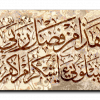 هذا من فضل ربي
ليبلوني أأشكر أم أكفر